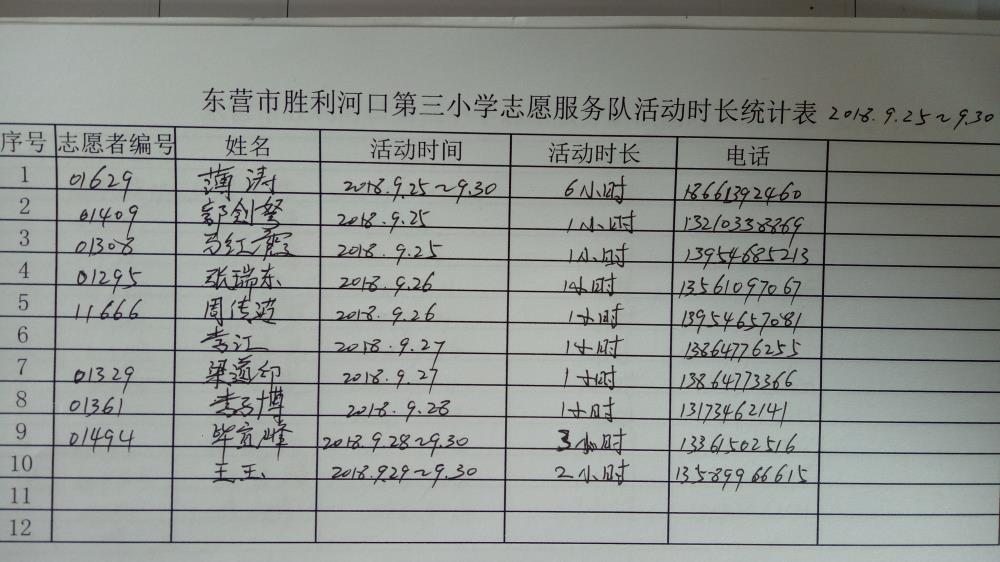 东营市胜利河口第三小学志愿服务队活动时长统计表 2018.9.25~9.30
序号 志愿者编号 姓名 活动时间 活动时长 电话
1 01629 薄涛 2018.9.25~9.30 6小时 18661392460
2 01409 郭剑 2018.9.25 1小时 13210338869
3 01308 马红霞 2018.9.25 1小时 13954685213
4 01295 张瑞东 2018.9.26 1小时 13561097067
5 11666 周传 2018.9.26 1小时 13954657081
6 李江 2018.9.27 1小时 13864776255
7 01329 梁 2018.9.27 1小时 13864773366
8 01361 李博 2018.9.28 1小时 13173462141
9 01494 毕峰 2018.9.28~9.30 3小时 13361502516
10 王玉 2018.9.29~9.30 2小时 13589966615
11
12